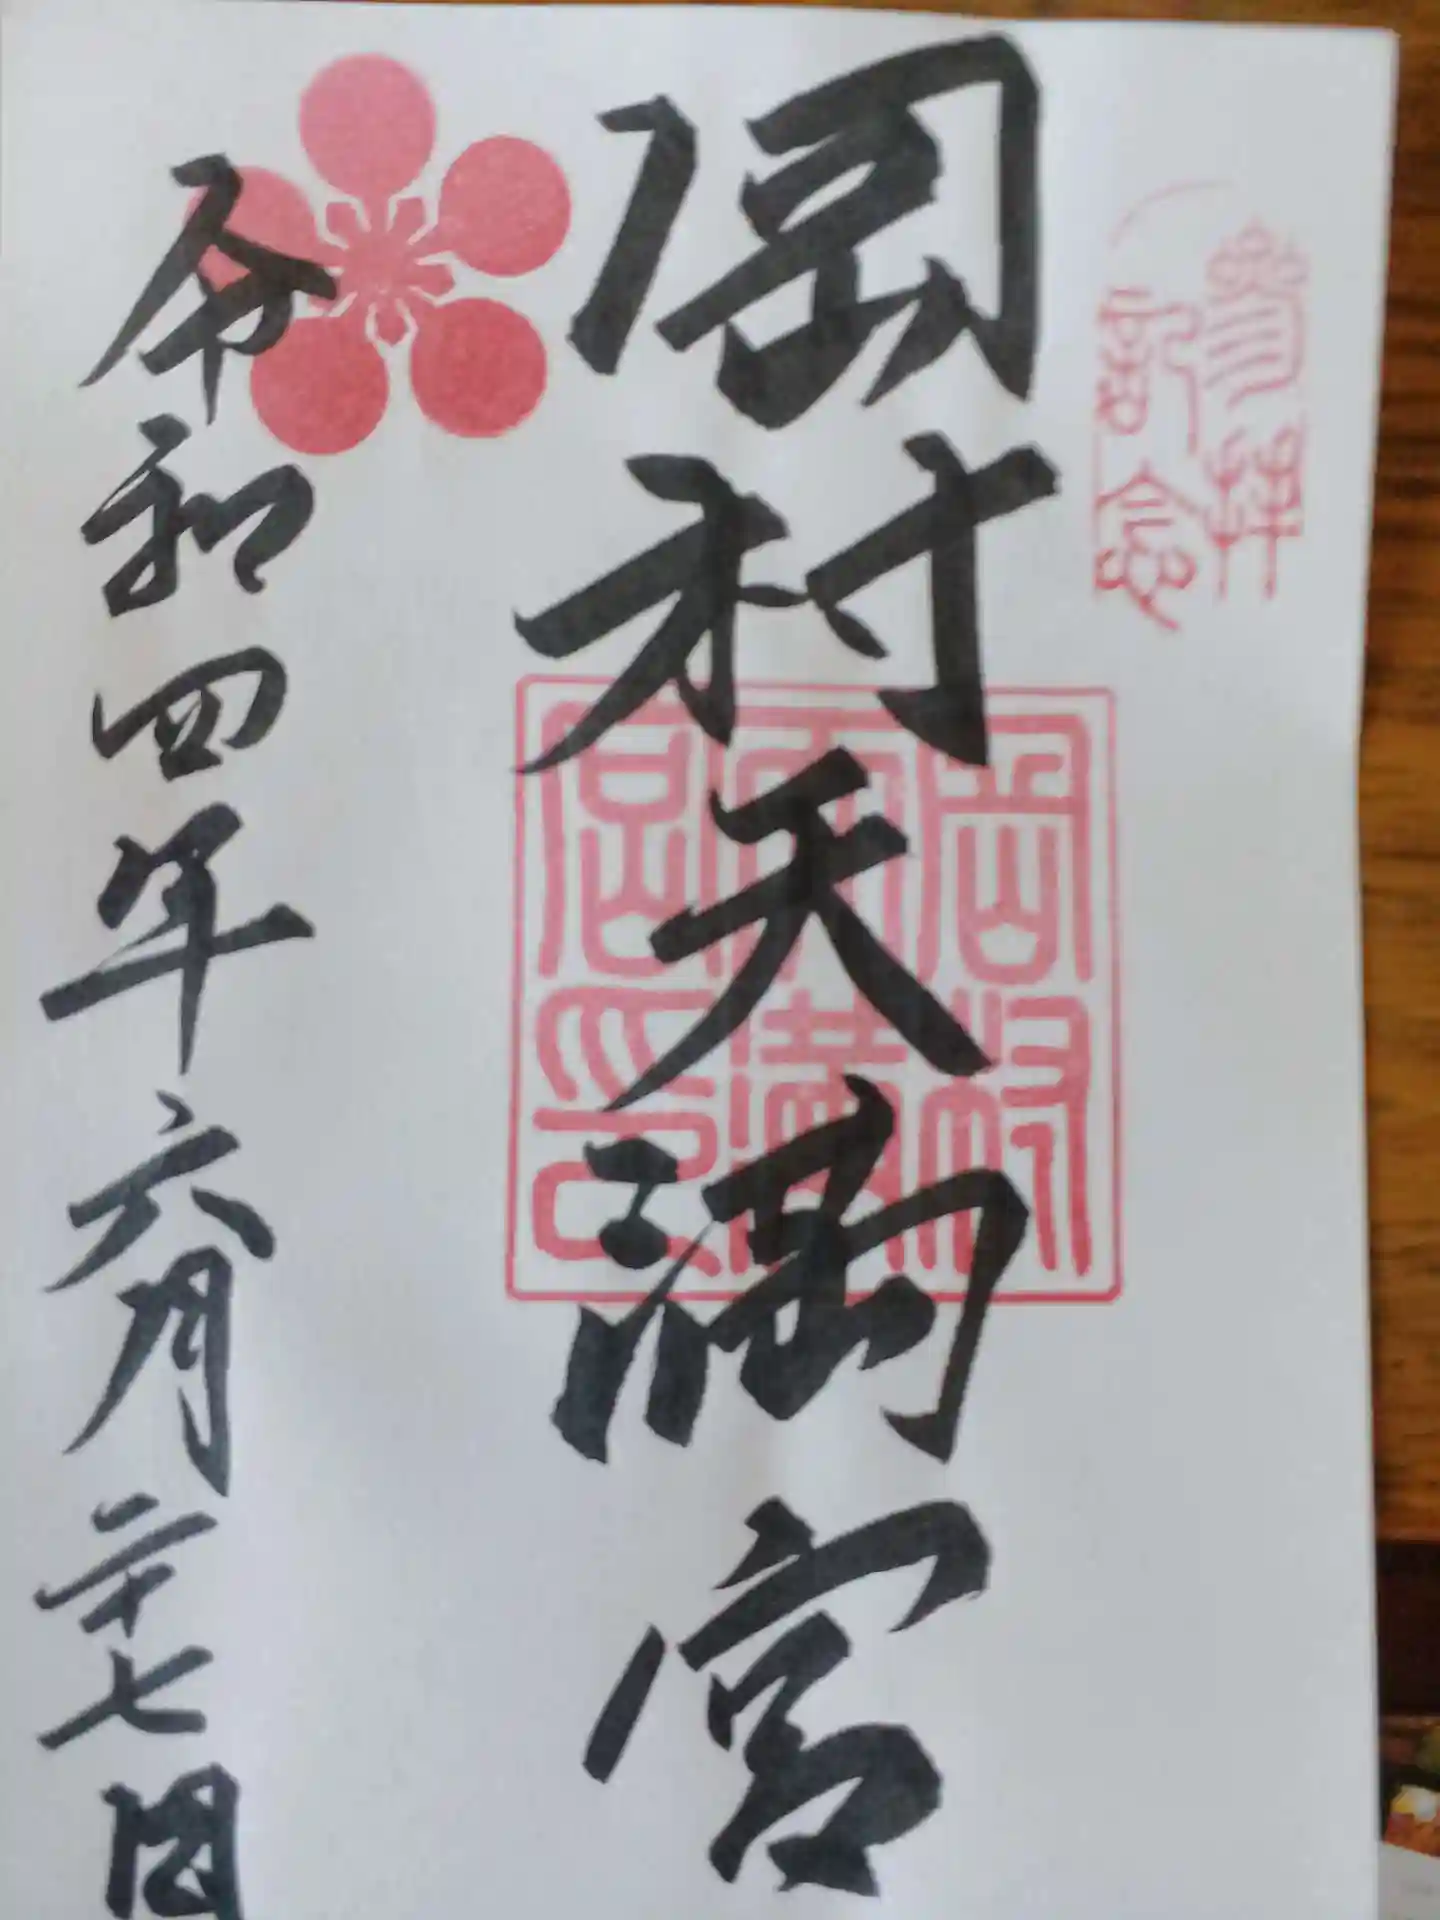 参拝
記念
岡村天満宮
岡村
天満
宮印
令和四年六月二十七日